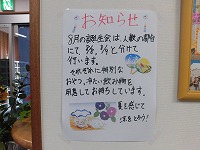 お知らせ
8月の誕生会は、人数の都合
にて、8/8、8/9と分けて
行います。
それぞれに特別な
おやつ、冷たい飲み物を
用意してお待ちしています。
夏を感じて